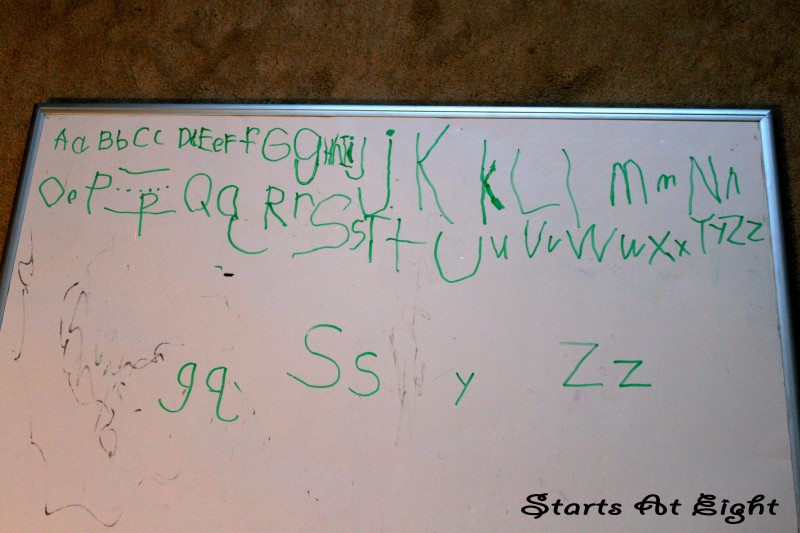 Aa Bb Cc Dd Ee Ff Gg Hh Ii Jj Kk Ll Mm Nn
Oo Pp Qq Rr Ss Tt Uu Vv Ww Xx Yy Zz
gq Ss y Zz
Starts At Eight